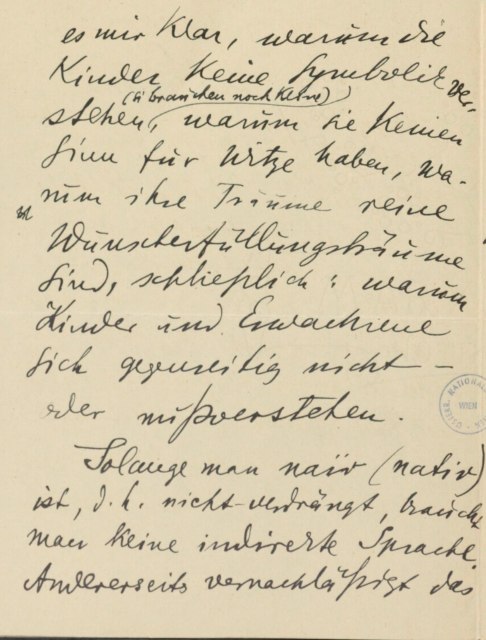 es mir klar, warum die
Kinder keine Symbolik ver-
(u brauchen noch keine)
stehen, warum sie keinen
Sinn für Witze haben, wa-
rum ihre Träume reine
Wunscherfüllungsträume
sind, schließlich: warum
Kinder und Erwachsene
sich gegenseitig nicht –
oder mißverstehen.
Solange man naiv (nativ)
ist, d.h. nicht-verdrängt, braucht
man keine indirekte Sprache.
Andererseits vernachläßigt das
WIEN